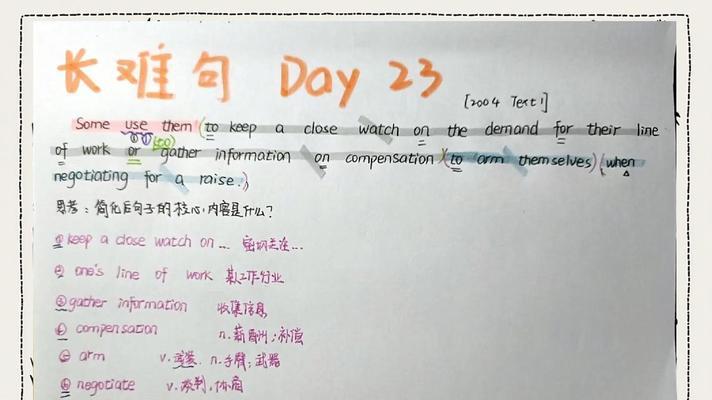 长难句 Day 23
[2004 Text1]
Some use them (to keep a close watch on the demand for their line
(to)
of work or gather information on compensation) (to arm themselves) (when
negotiating for a raise.)
思考：简化后句子的核心内容是什么？
① keep a close watch on ... 密切关注...
② one's line of work 某人工作行业
③ gather information 收集信息
④ compensation n. 薪酬；补偿
⑤ arm v. 武装 n. 手臂；武器
⑥ negotiate v. 谈判，协商